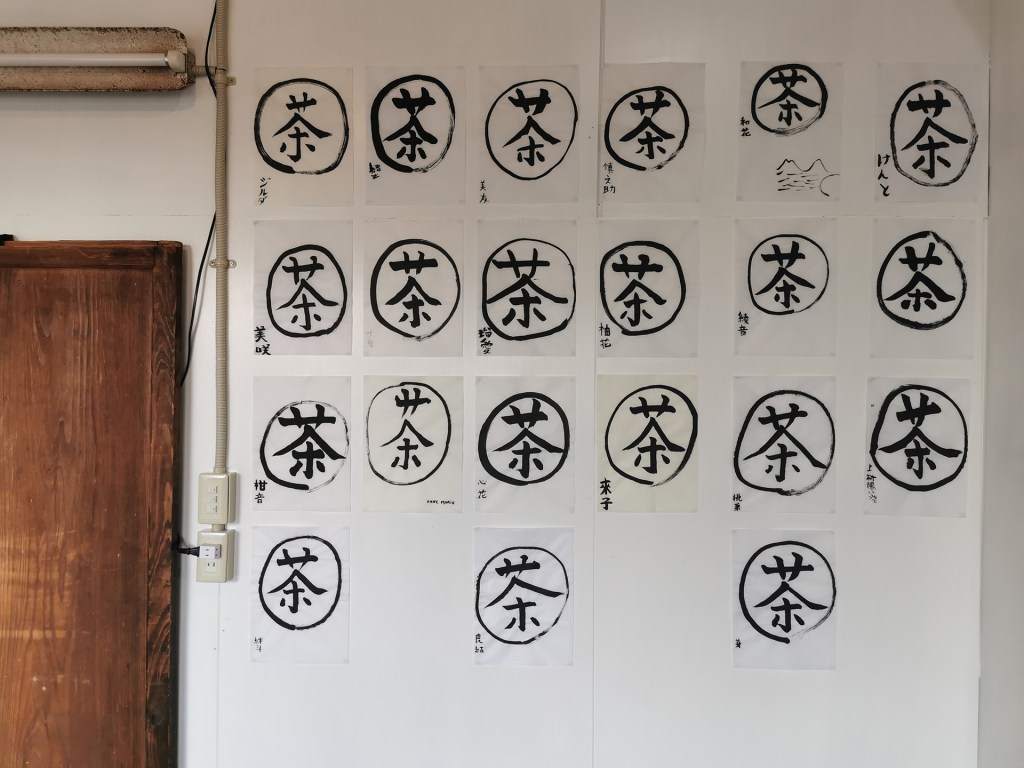 茶
ジルダ
茶
茶
美友
茶
慎之助
茶
和花
茶
けんと
茶
美咲
茶
茶
瑠愛
茶
柚花
茶
綾音
茶
茶
柑音
茶
ANNE MARIE
茶
心花
茶
來子
茶
桃菜
茶
茶
茶
茶